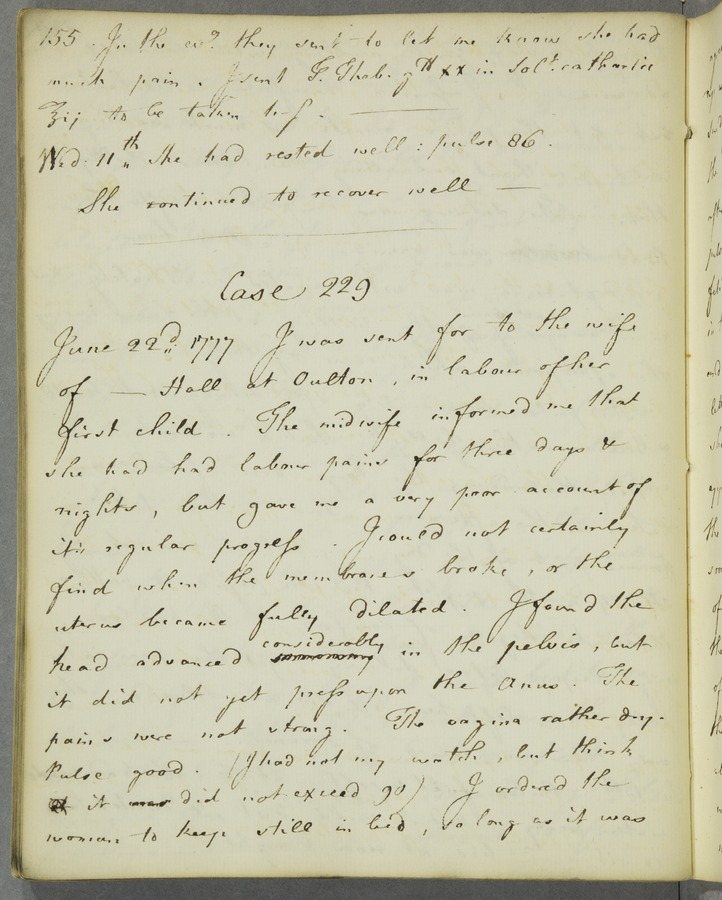 155. In the evg. they sent to let me know she had
much pain. I sent T. Theb. gtt xx in Solt. cathartic
℥ij to be taken h.s.
Wed. 11th She had rested well: pulse 86.
She continued to recover well —
Case 229
June 22d. 1777 I was sent for to the wife
of — Hall at Oulton, in labour of her
first child. The midwife informed me that
she had had labour pains for three days &
nights, but gave me a very poor account of
it's regular progress. I could not certainly
find when the membranes broke, or the
uterus became fully dilated. I found the
head advanced considerably in the pelvis, but
it did not yet press upon the Anus. The
pains were not strong. The vagina rather dry.
Pulse good. (I had not my watch, but think
it did not exceed 90) I ordered the
woman to keep still in bed, so long as it was